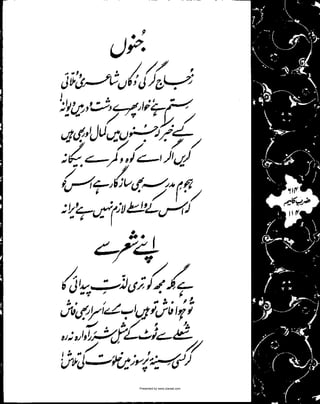 جنوں
زجاج گر کی دکاں شاعری و ملائی
ستم ہے خوار پھرے دشت و در میں دیوانہ!
کسے خبر کہ جنوں میں کمال اور بھی ہیں
کریں اگر اسے کوہ و کمر سے بیگانہ
ہجوم مدرسہ بھی سازگار ہے اس کو
کہ اس کے واسطے لازم نہیں ہے ویرانہ!
اپنے شعر سے
ہے گلہ مجھ کو تری لذت پیدائی کا
تو ہوا فاش تو ہیں اب مرے اسرار بھی فاش
شعلے سے ٹوٹ کے مثل شرر آوارہ نہ رہ
کر کسی سینۂ پرسوز میں خلوت کی تلاش!
ضرب کلیم
۱۱۴
Presented by www.ziaraat.com